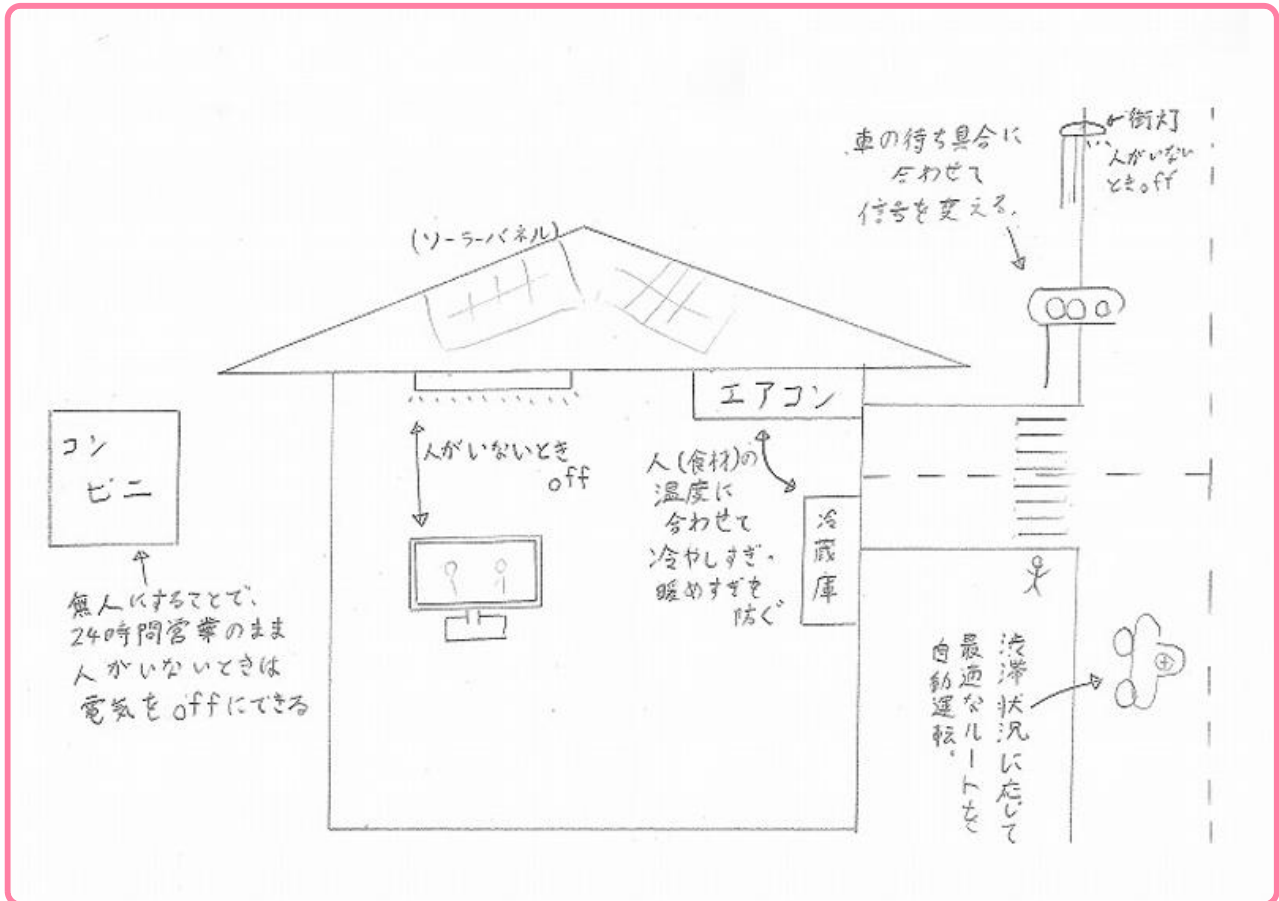 車の待ち具合に
合わせて
信号を変える。
←街灯
人がいない
ときoff
(ソーラーパネル)
エアコン
人がいないとき
off
人(食材)の
温度に
合わせて
冷やしすぎ・
暖めすぎを
防ぐ
冷蔵庫
コン
ビニ
無人にすることで、
24時間営業のまま
人がいないときは
電気をoffにできる
渋滞状況に応じて
最適なルートを
自動運転。